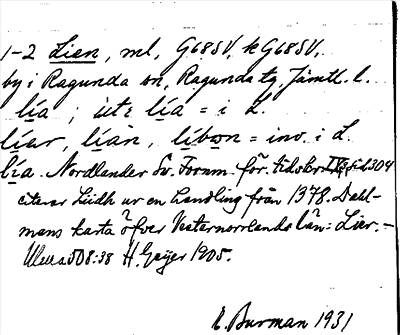 1-2 Lien, ml, G68SV, k G68SV,
by i Ragunda sn, Ragunda tg, Jämtl. l.
lía ; ùti lía = i L.
líar, lían, líbon = inv. i L.
lía. Nordlander Sv. Fornm. för. tidskr sid 304
citerar Liidh ur en handling från 1378. Dahl-
mans karta öfver Vesternorrlands län: Lier. -
508:38 H. Geijer 1905.
Burman 1931